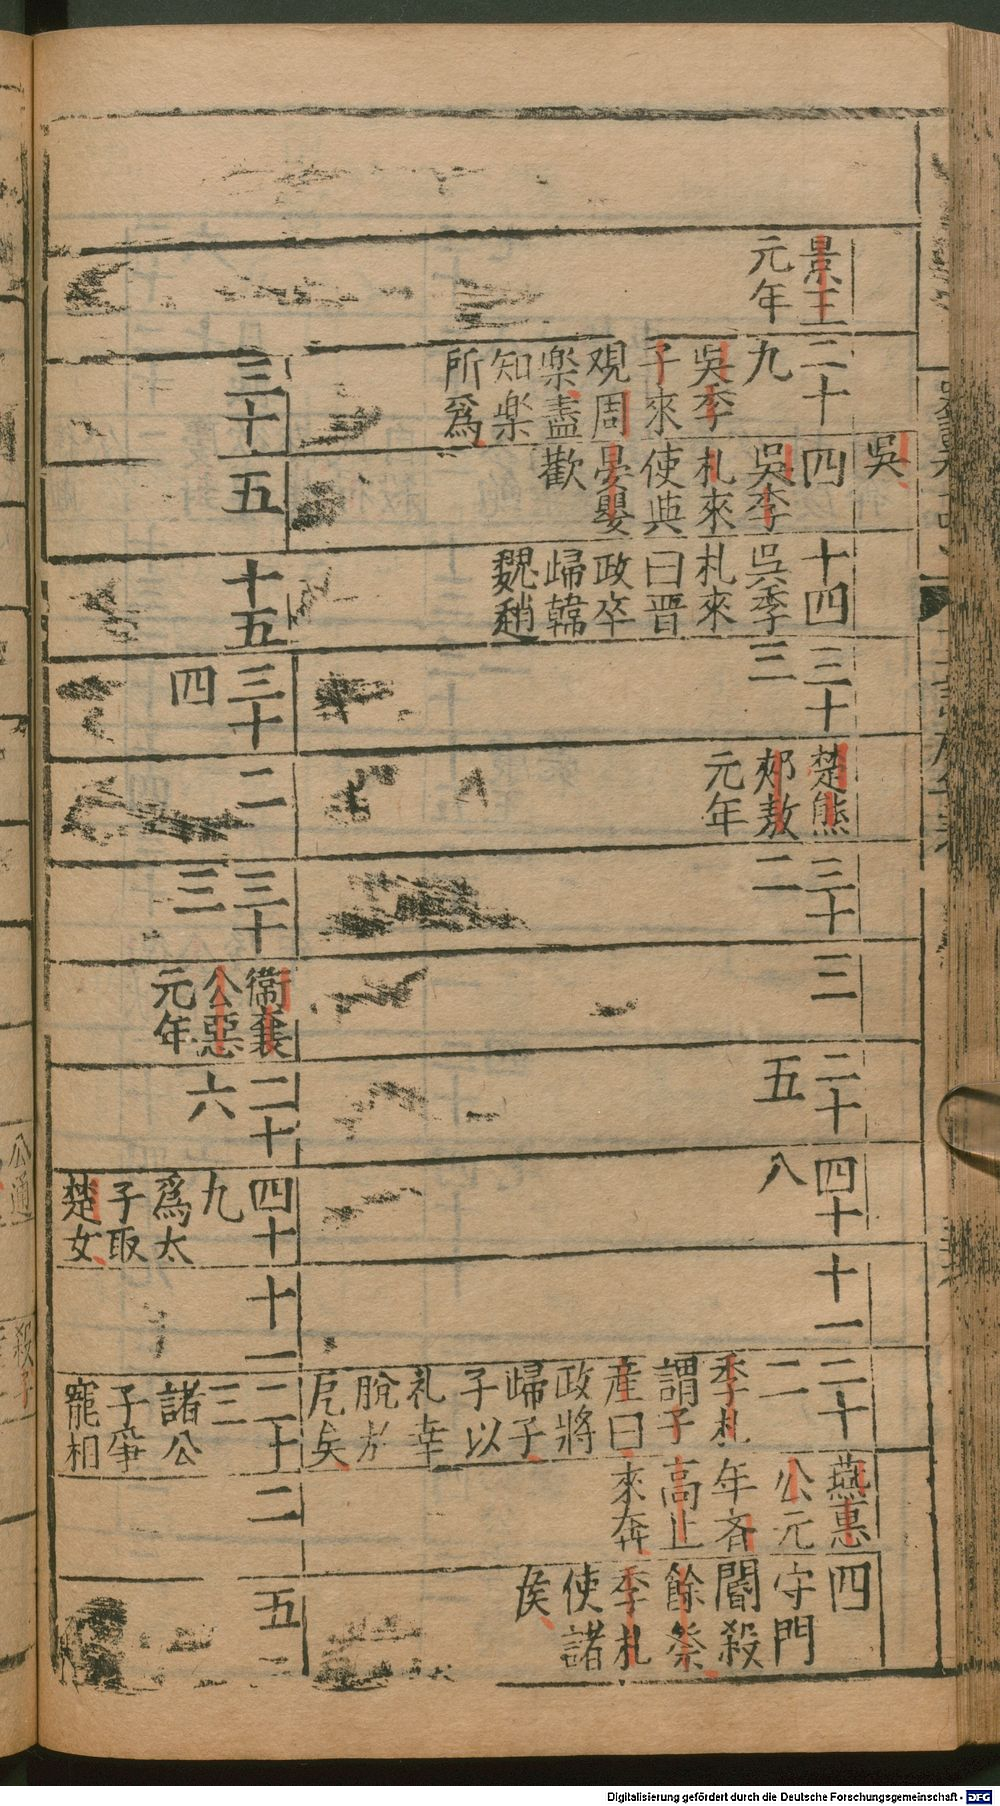 景王
元年
二十
九
吳季
子來
观周
楽盡
知楽
所爲
吳
四
吳季
札來
使與
晏嬰
歡
十四
吳季
札來
曰晋
政卒
歸韓
魏趙
三十
三
楚熊
郟敖
元年
三十
二
三
二十
五
四十
八
十一
二十
二
季札
謂子
産曰
政將
歸子
子以
礼幸
脫於
戹矣
燕惠
公元
年齐
高止
來奔
四
守門
閽殺
餘祭
季札
使諸
侯
三十
五
十五
三十
四
二
三十
三
衛襄
公惡
元年
二十
六
四十
九
爲太
子取
楚女
十一
二十
三
諸公
子爭
寵相
二
五
公通
殺子
Digitalisierung gefördert durch die Deutsche Forschungsgemeinschaft - DFG